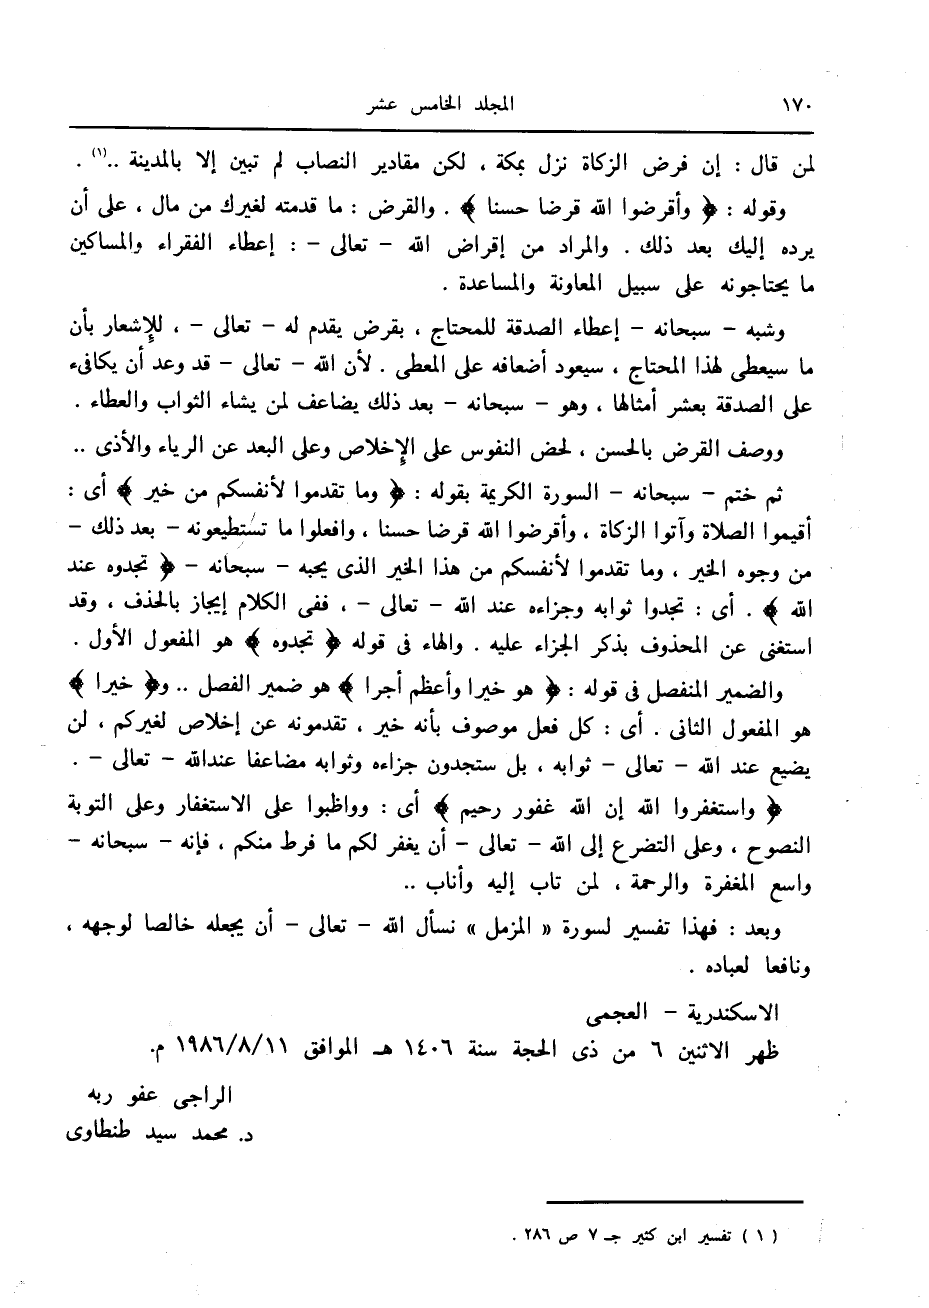 ١٧٠
المجلد الخامس عشر
لمن قال : إن فرض الزكاة نزل بمكة ، لكن مقادير النصاب لم تبين إلا بالمدينة ..(١) .
وقوله : ﴿ وأقرضوا الله قرضا حسنا ﴾ . والقرض : ما قدمته لغيرك من مال ، على أن
يرده إليك بعد ذلك . والمراد من إقراض الله – تعالى – : إعطاء الفقراء والمساكين
ما يحتاجونه على سبيل المعاونة والمساعدة .
وشبه – سبحانه – إعطاء الصدقة للمحتاج ، بقرض يقدم له – تعالى – ، للإشعار بأن
ما سيعطى لهذا المحتاج ، سيعود أضعافه على المعطى . لأن الله – تعالى – قد وعد أن يكافىء
على الصدقة بعشر أمثالها ، وهو – سبحانه – بعد ذلك يضاعف لمن يشاء الثواب والعطاء .
ووصف القرض بالحسن ، لحض النفوس على الإخلاص وعلى البعد عن الرياء والأذى ..
ثم ختم – سبحانه – السورة الكريمة بقوله : ﴿ وما تقدموا لأنفسكم من خير ﴾ أى :
أقيموا الصلاة وآتوا الزكاة ، وأقرضوا الله قرضا حسنا ، وافعلوا ما تستطيعونه – بعد ذلك –
من وجوه الخير ، وما تقدموا لأنفسكم من هذا الخير الذى يحبه – سبحانه – ﴿ تجدوه عند
الله ﴾ . أى : تجدوا ثوابه وجزاءه عند الله – تعالى – ، ففى الكلام إيجاز بالحذف ، وقد
استغنى عن المحذوف بذكر الجزاء عليه . والهاء فى قوله ﴿ تجدوه ﴾ هو المفعول الأول .
والضمير المنفصل فى قوله : ﴿ هو خيرا وأعظم أجرا ﴾ هو ضمير الفصل .. و﴿ خيرا ﴾
هو المفعول الثانى . أى : كل فعل موصوف بأنه خير ، تقدمونه عن إخلاص لغيركم ، لن
يضيع عند الله – تعالى – ثوابه ، بل ستجدون جزاءه وثوابه مضاعفا عندالله – تعالى – .
﴿ واستغفروا الله إن الله غفور رحيم ﴾ أى : وواظبوا على الاستغفار وعلى التوبة
النصوح ، وعلى التضرع إلى الله – تعالى – أن يغفر لكم ما فرط منكم ، فإنه – سبحانه –
واسع المغفرة والرحمة ، لمن تاب إليه وأناب ..
وبعد : فهذا تفسير لسورة « المزمل » نسأل الله – تعالى – أن يجعله خالصا لوجهه ،
ونافعا لعباده .
الاسكندرية – العجمى
ظهر الاثنين ٦ من ذى الحجة سنة ١٤٠٦ هـ الموافق ١٩٨٦/٨/١١ م.
الراجى عفو ربه
د. محمد سيد طنطاوى
( ١ ) تفسير ابن كثير جـ ٧ ص ٢٨٦ .